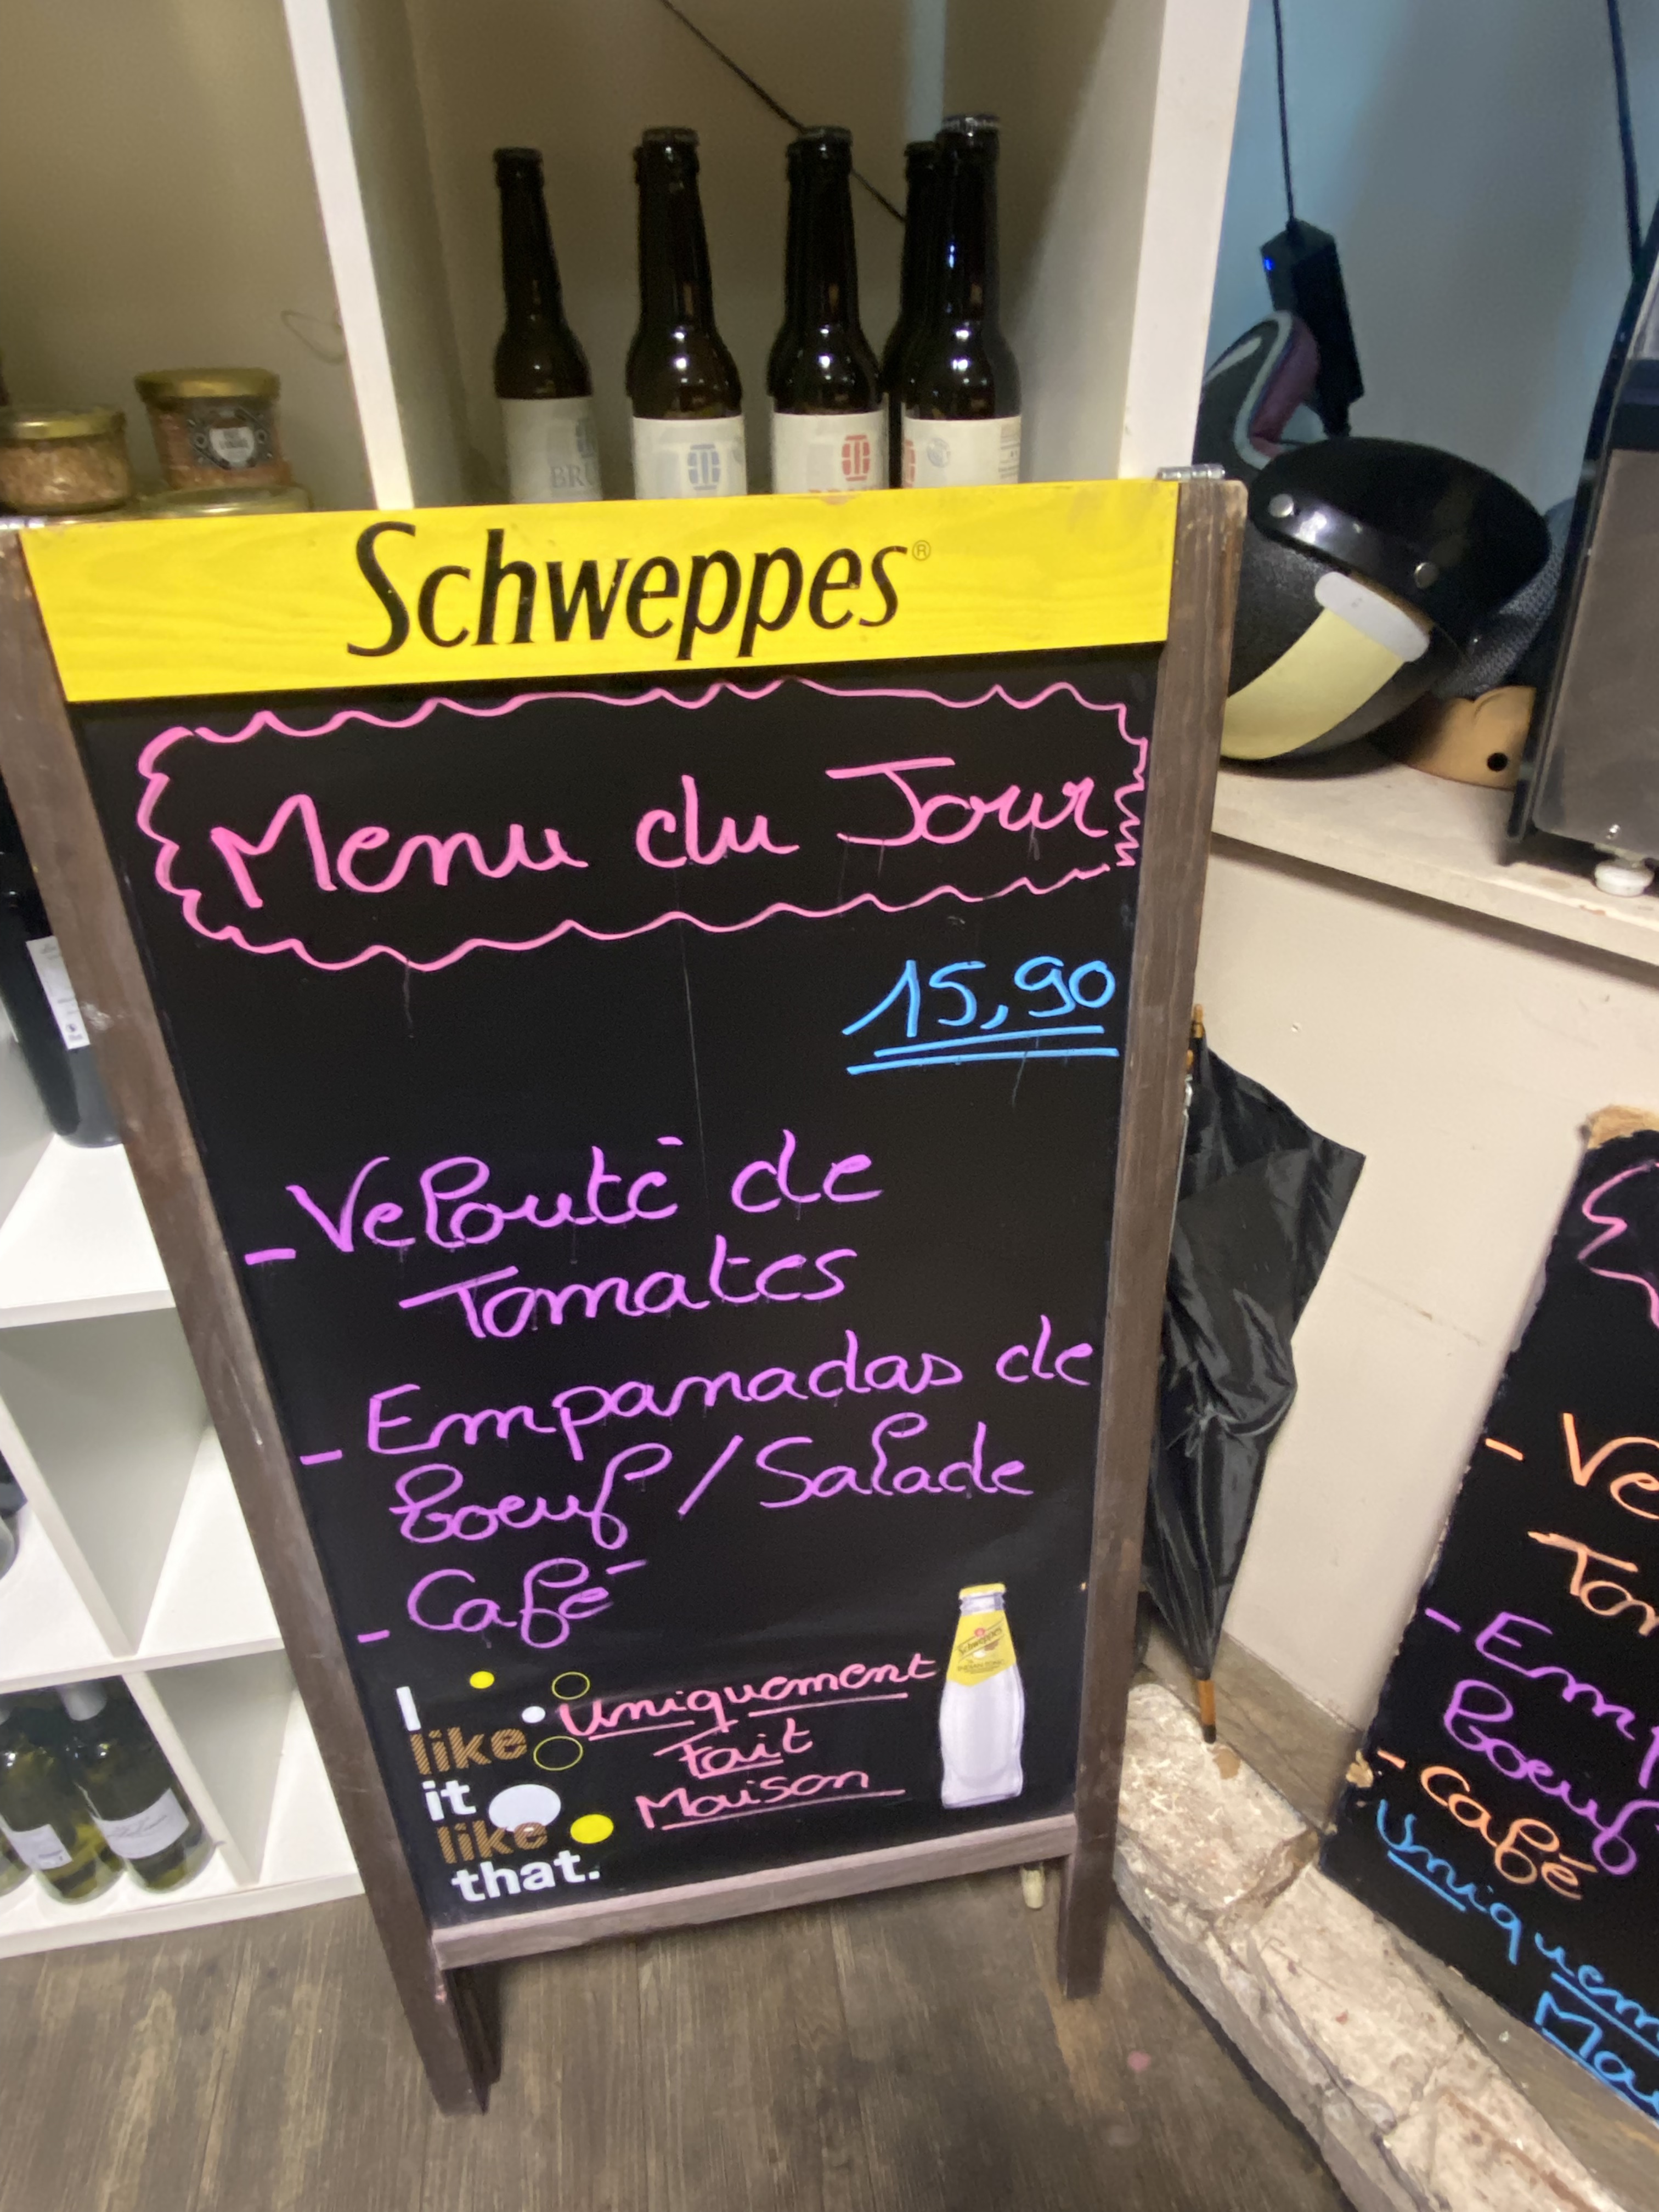 Schweppes®
Menu du Jour
15,90
- Velouté de
Tomates
- Empanadas de
boeuf / Salade
- Café
Uniquement
Fait
Maison
I
like
it
like
that.
Schweppes
- Ve
Tom
- Emp
boeuf
- Café
Uniquem
Mai